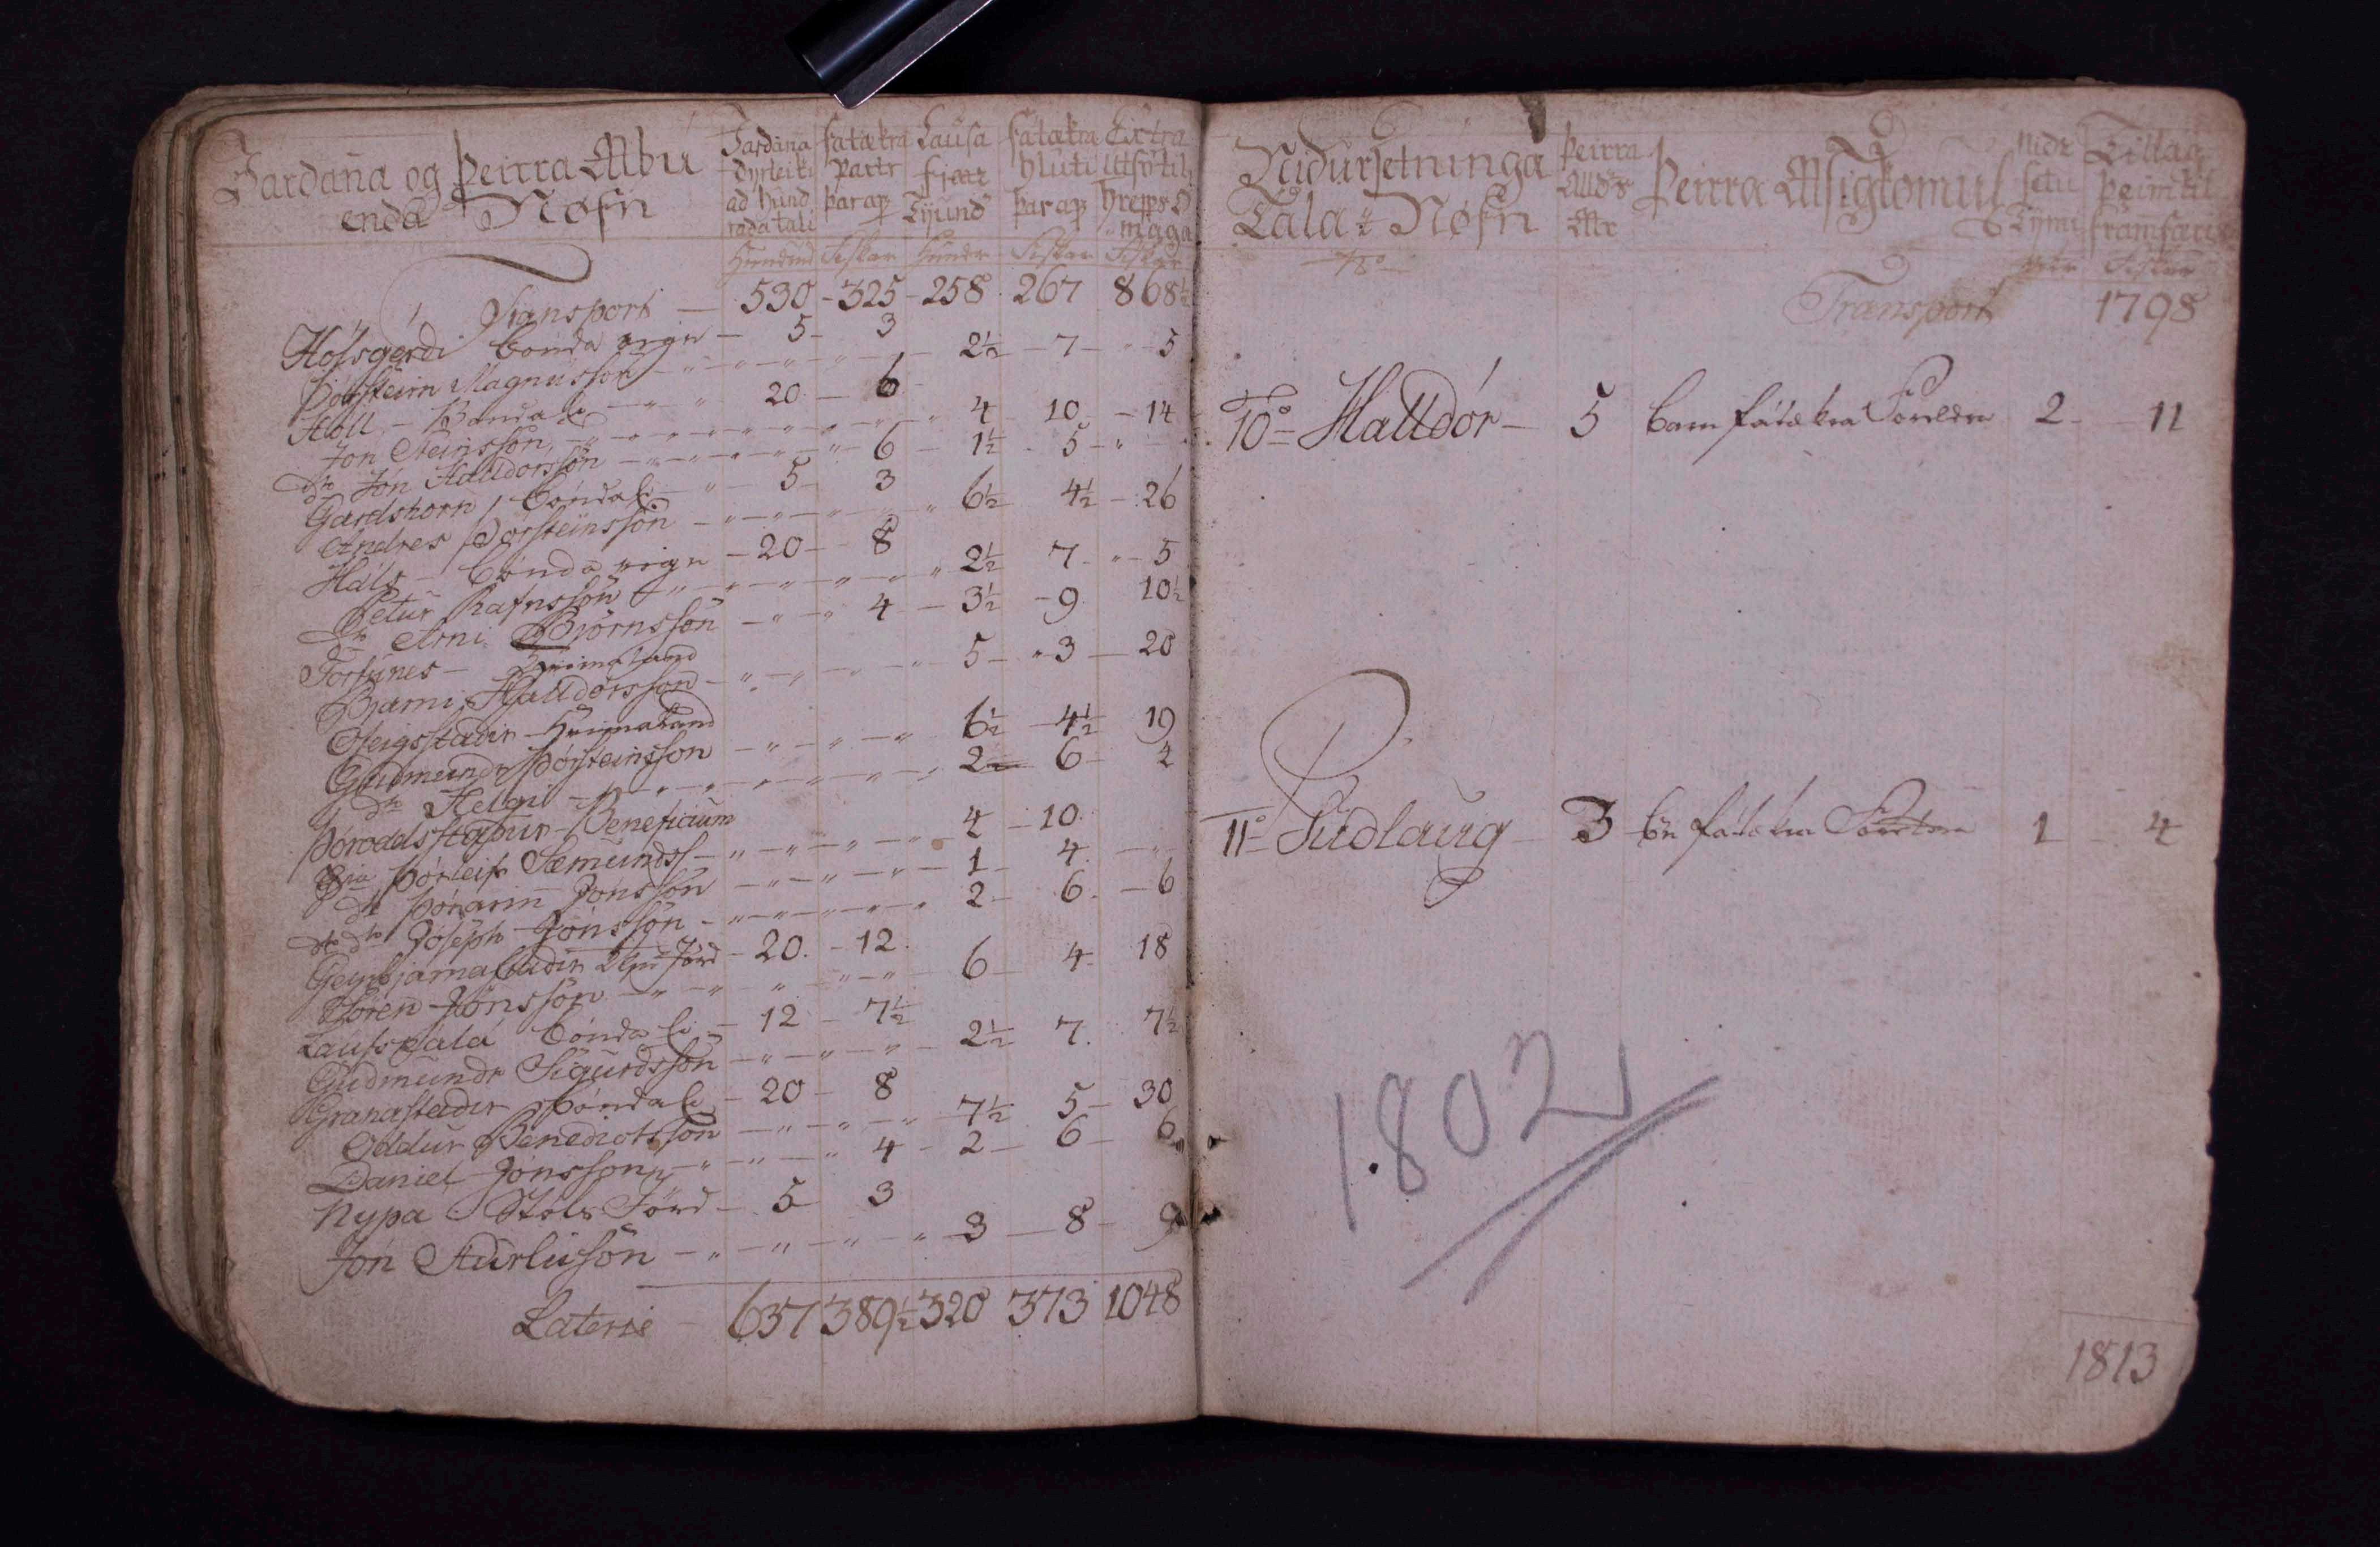 Jardaña og þeirra Abu
enda Nøfn
Jardaña dyrleiki ad hund rada tali
fatækra Partr þar af
Lausa fjær Tijund
fatækra hluti þar af
Extra Utsvòr til hrepps O maga
Hundrud Fiskar Hundr Fiskar Fiskar
Transport — 530 - 325 - 258 267 868½
Hólsgérdi bonda eign — 5 — 3
Þorsteirn Magnusson 2½ — 7 — 5
Holl — Bonda e 20 — 6
Jon Steinsson 4 10 — 14
do Jón Halldorsson 6 — 1½ 5 - "
Gardshorn, bónda e 5 3
Andres Þorsteinsson 6½ 4½ — 26
Háls — bónda eign — 20 — 8
Petur Rafnsson 2½ 7 " 5
do Arni Biörnsson 4 — 3½ — 9 10½
Torfunes — Heimaland
Bjarni Halldorsson 5 — " 3 — 20
Ofeigsstadir — Heimaland
Gudmundr Þorsteinsson 6½ — 4½ 19
do Helgi 2 — 6 — 4
Þoroddsstadur — Beneficium
Sra Þorleifr Sæmundss 4 — 10
do Þórarin̄ Jónsson 1 4
do do Jóseph Jónsson 2 — 6 — 6
Geirbjarnastadir Jörd — 20 — 12
Sören Jónsson 6 — 4 18
Laufsvala bónda e — 12 — 7½
Gudmundr Sigurdsson 2½ 7 7½
Granastadir bónda e — 20 — 8
Oddur Benedictsson 7½ 5 — 30
Daniel Jónsson 4 — 2 — 6 — 6
Nypa Stóls Jörd — 5 3
Jón Sturluson 3 — 8 — 9
Lateris — 637 389½ 320 373 1048
Nidursetninga
Tala & Nøfn
þeirra Alldr Ar
Þeirra Asigkomul
Nidr setu Tijmi
Tillag þeim til framfæris
Fiskar
Transport 1798
10o Halldór — 5 barn fátækra Foreldra 2 — 11
11o Gudlaug — 3 bn fátækra Foreldra 1 — 4
1802
1813